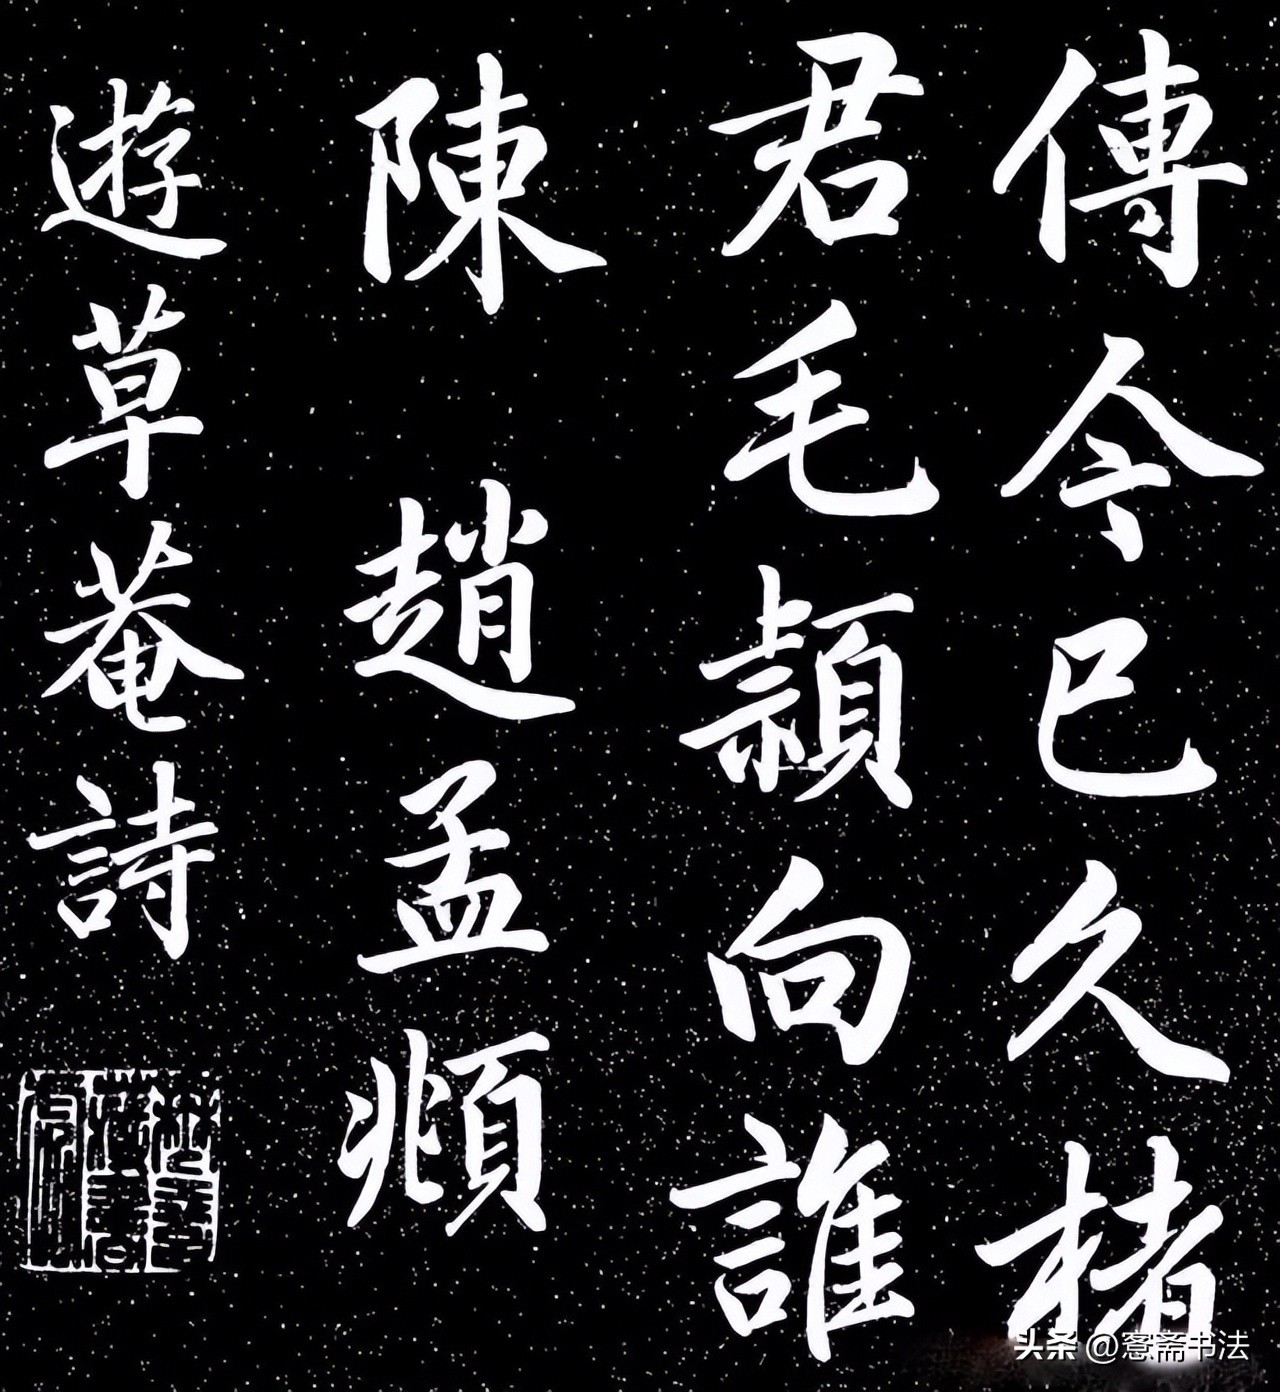 傳今已久楮
君毛穎向誰
陳 趙孟頫
遊草菴詩
头条 @窓斋书法